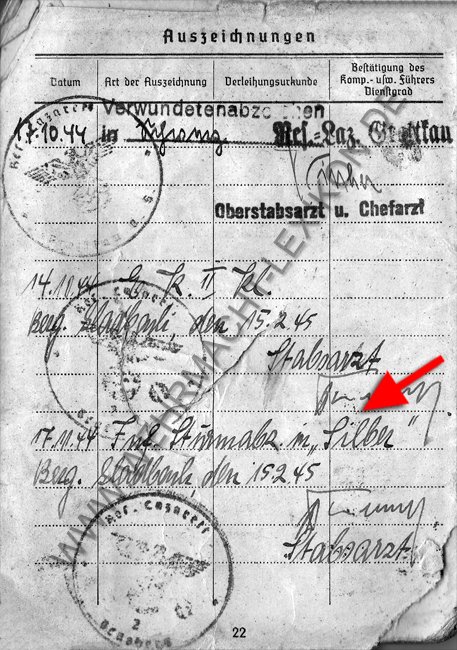 Auszeichnungen
Datum
Art der Auszeichnung
Verleihungsurkunde
Bestätigung des
Komp.- usw. Führers
Dienstgrad
Verwundetenabzeichen
17.10.44 in Schwarz Res.-Laz. Grottkau
Oberstabsarzt u. Chefarzt
14.10.44 E. K. II Kl.
Berg. den 15.2.45
Stabsarzt
17.11.44 Inf. Sturmabz. in „Silber“
Berg. den 15.2.45
Stabsarzt
Res. Lazarett
2
Bensberg
22
WWW.WEHRMACHT-LEXIKON.DE